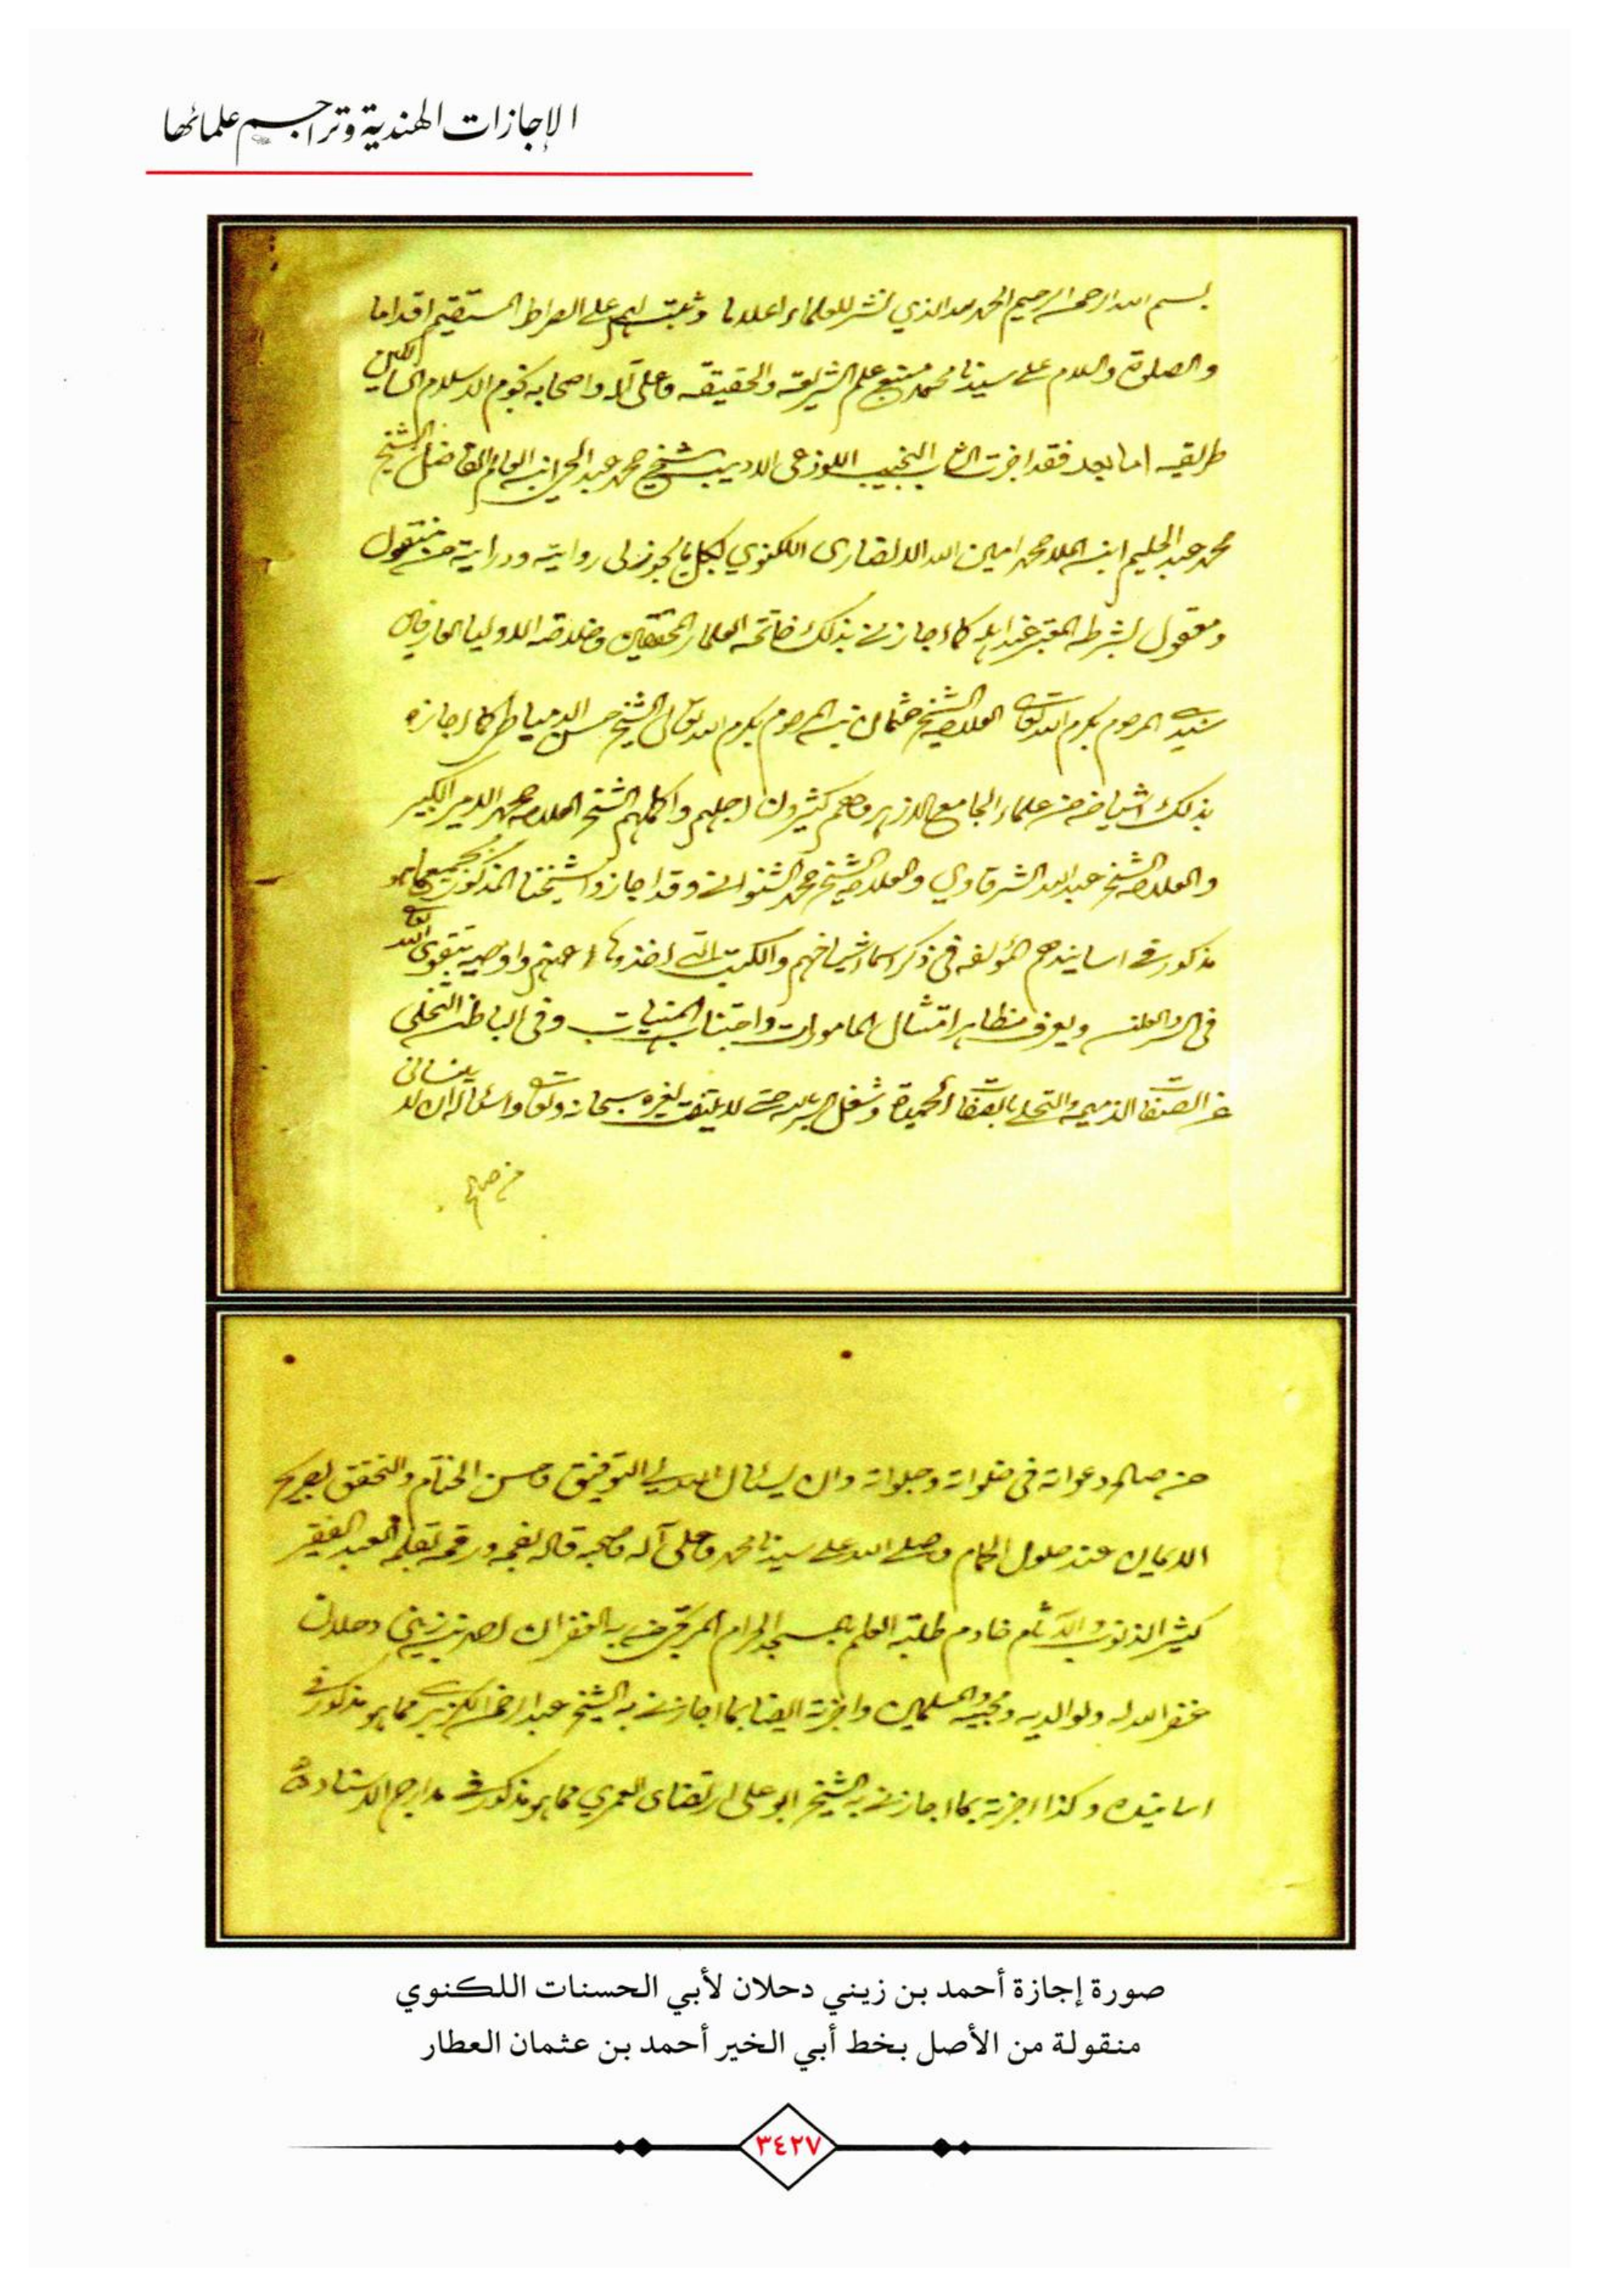 الإجازات الهندية وتراجم علمائها
بسم الله الرحمن الرحيم الحمد لله الذي نشر للعلماء اعلاما وثبت لهم على الصراط المستقيم اقداما
والصلوة والسلام على سيدنا محمد منبع علم الشريعة والحقيقة وعلى آله واصحابه نجوم الاسلام السالكين
طريقه اما بعد فقد اجزت الشاب النجيب اللوذعى الاديب الشيخ محمد عبد الحي ابن العالم الفاضل الشيخ
محمد عبد الحليم ابن الملا محمد امين الله الانصارى اللكنوي بكل ما يجوز لى روايته ودرايته من منقول
ومعقول بشرطه المعتبر عند اهله كما اجازني بذلك خاتمة العلماء المحققين وخلاصة الاوليا العارفين
سيدي المرحوم بكرم الله تعالى العلامة الشيخ عثمان بن المرحوم بكرم الله تعالى الشيخ حسن الدمياطي كما اجازه
بذلك اشياخه من علماء الجامع الازهر وهم كثيرون اجلهم واكملهم الشيخ العلامة محمد الامير الكبير
والعلامة الشيخ عبد الله الشرقاوي والعلامة الشيخ محمد الشنواني وقد اجازوا شيخنا المذكور بجميع ما هو
مذكور في اسانيدهم المؤلفة في ذكر اسماء اشياخهم والكتب التي اخذوها عنهم واوصيه بتقوى الله تعالى
في السر والعلن و امتثال المامورات واجتناب المنهيات وفى الباطن التخلى
عن الصفات الذميمة والتحلي بالصفات الحميدة وشغل السر بالله حتى لا يلتفت لغيره سبحانه وتعالى واسأله ان لا ينسانى
من صالح
من صالح دعواته في خلواته وجلواته وان يسئال الله لي التوفيق وحسن الختام والتحقق بصريح
الايمان عند حلول الحمام وصلى الله على سيدنا محمد وعلى آله وصحبه قاله بفمه ورقمه بقلمه العبد الفقير
كثير الذنوب والآثام خادم طلبة العلم بالمسجد الحرام المرتجى من ربه الغفران احمد بن زيني دحلان
غفر الله له ولوالديه ومحبيه والمسلمين واجزته ايضا بما اجازني به الشيخ عبد الرحمن الكزبري مما هو مذكور في
اسانيده وكذا اجزته بما اجازني به الشيخ ابو على ارتضاى العمري مما هو مذكور في مدارج الاسناد
صورة إجازة أحمد بن زيني دحلان لأبي الحسنات اللكنوي
منقولة من الأصل بخط أبي الخير أحمد بن عثمان العطار
٣٤٢٧